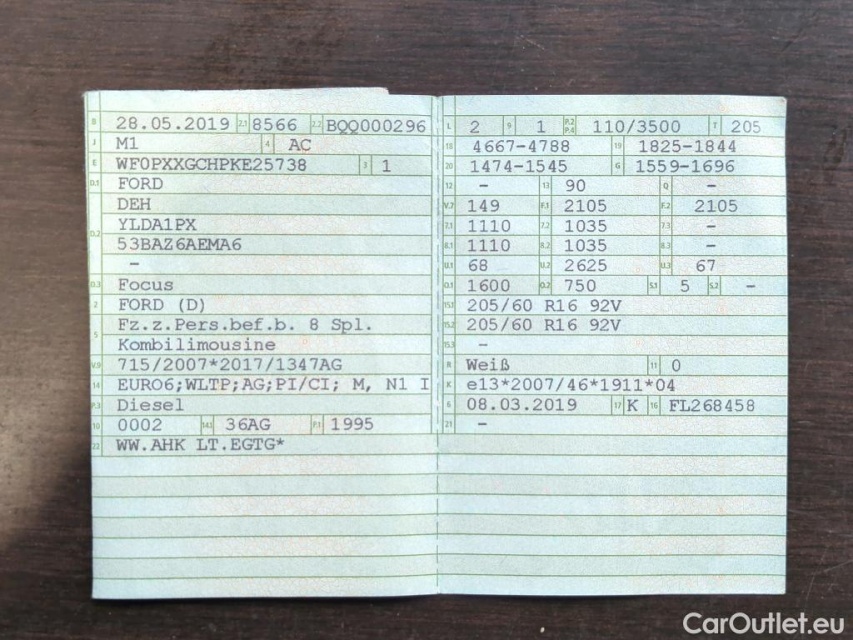 B 28.05.2019 2.1 8566 2.2 BQQ000296
J M1 4 AC
E WF0PXXGCHPKE25738 3 1
D.1 FORD
DEH
D.2 YLDA1PX
53BAZ6AEMA6
–
D.3 Focus
2 FORD (D)
5 Fz.z.Pers.bef.b. 8 Spl.
Kombilimousine
V.9 715/2007*2017/1347AG
14 EURO6;WLTP;AG;PI/CI; M, N1 I
P.3 Diesel
10 0002 14.1 36AG P.1 1995
22 WW.AHK LT.EGTG*
L 2 9 1 P.2 P.4 110/3500 T 205
18 4667-4788 19 1825-1844
20 1474-1545 G 1559-1696
12 – 13 90 Q –
V.7 149 F.1 2105 F.2 2105
7.1 1110 7.2 1035 7.3 –
8.1 1110 8.2 1035 8.3 –
U.1 68 U.2 2625 U.3 67
O.1 1600 O.2 750 S.1 5 S.2 –
15.1 205/60 R16 92V
15.2 205/60 R16 92V
15.3 –
R Weiß 11 0
K e13*2007/46*1911*04
6 08.03.2019 17 K 16 FL268458
21 –
CarOutlet.eu